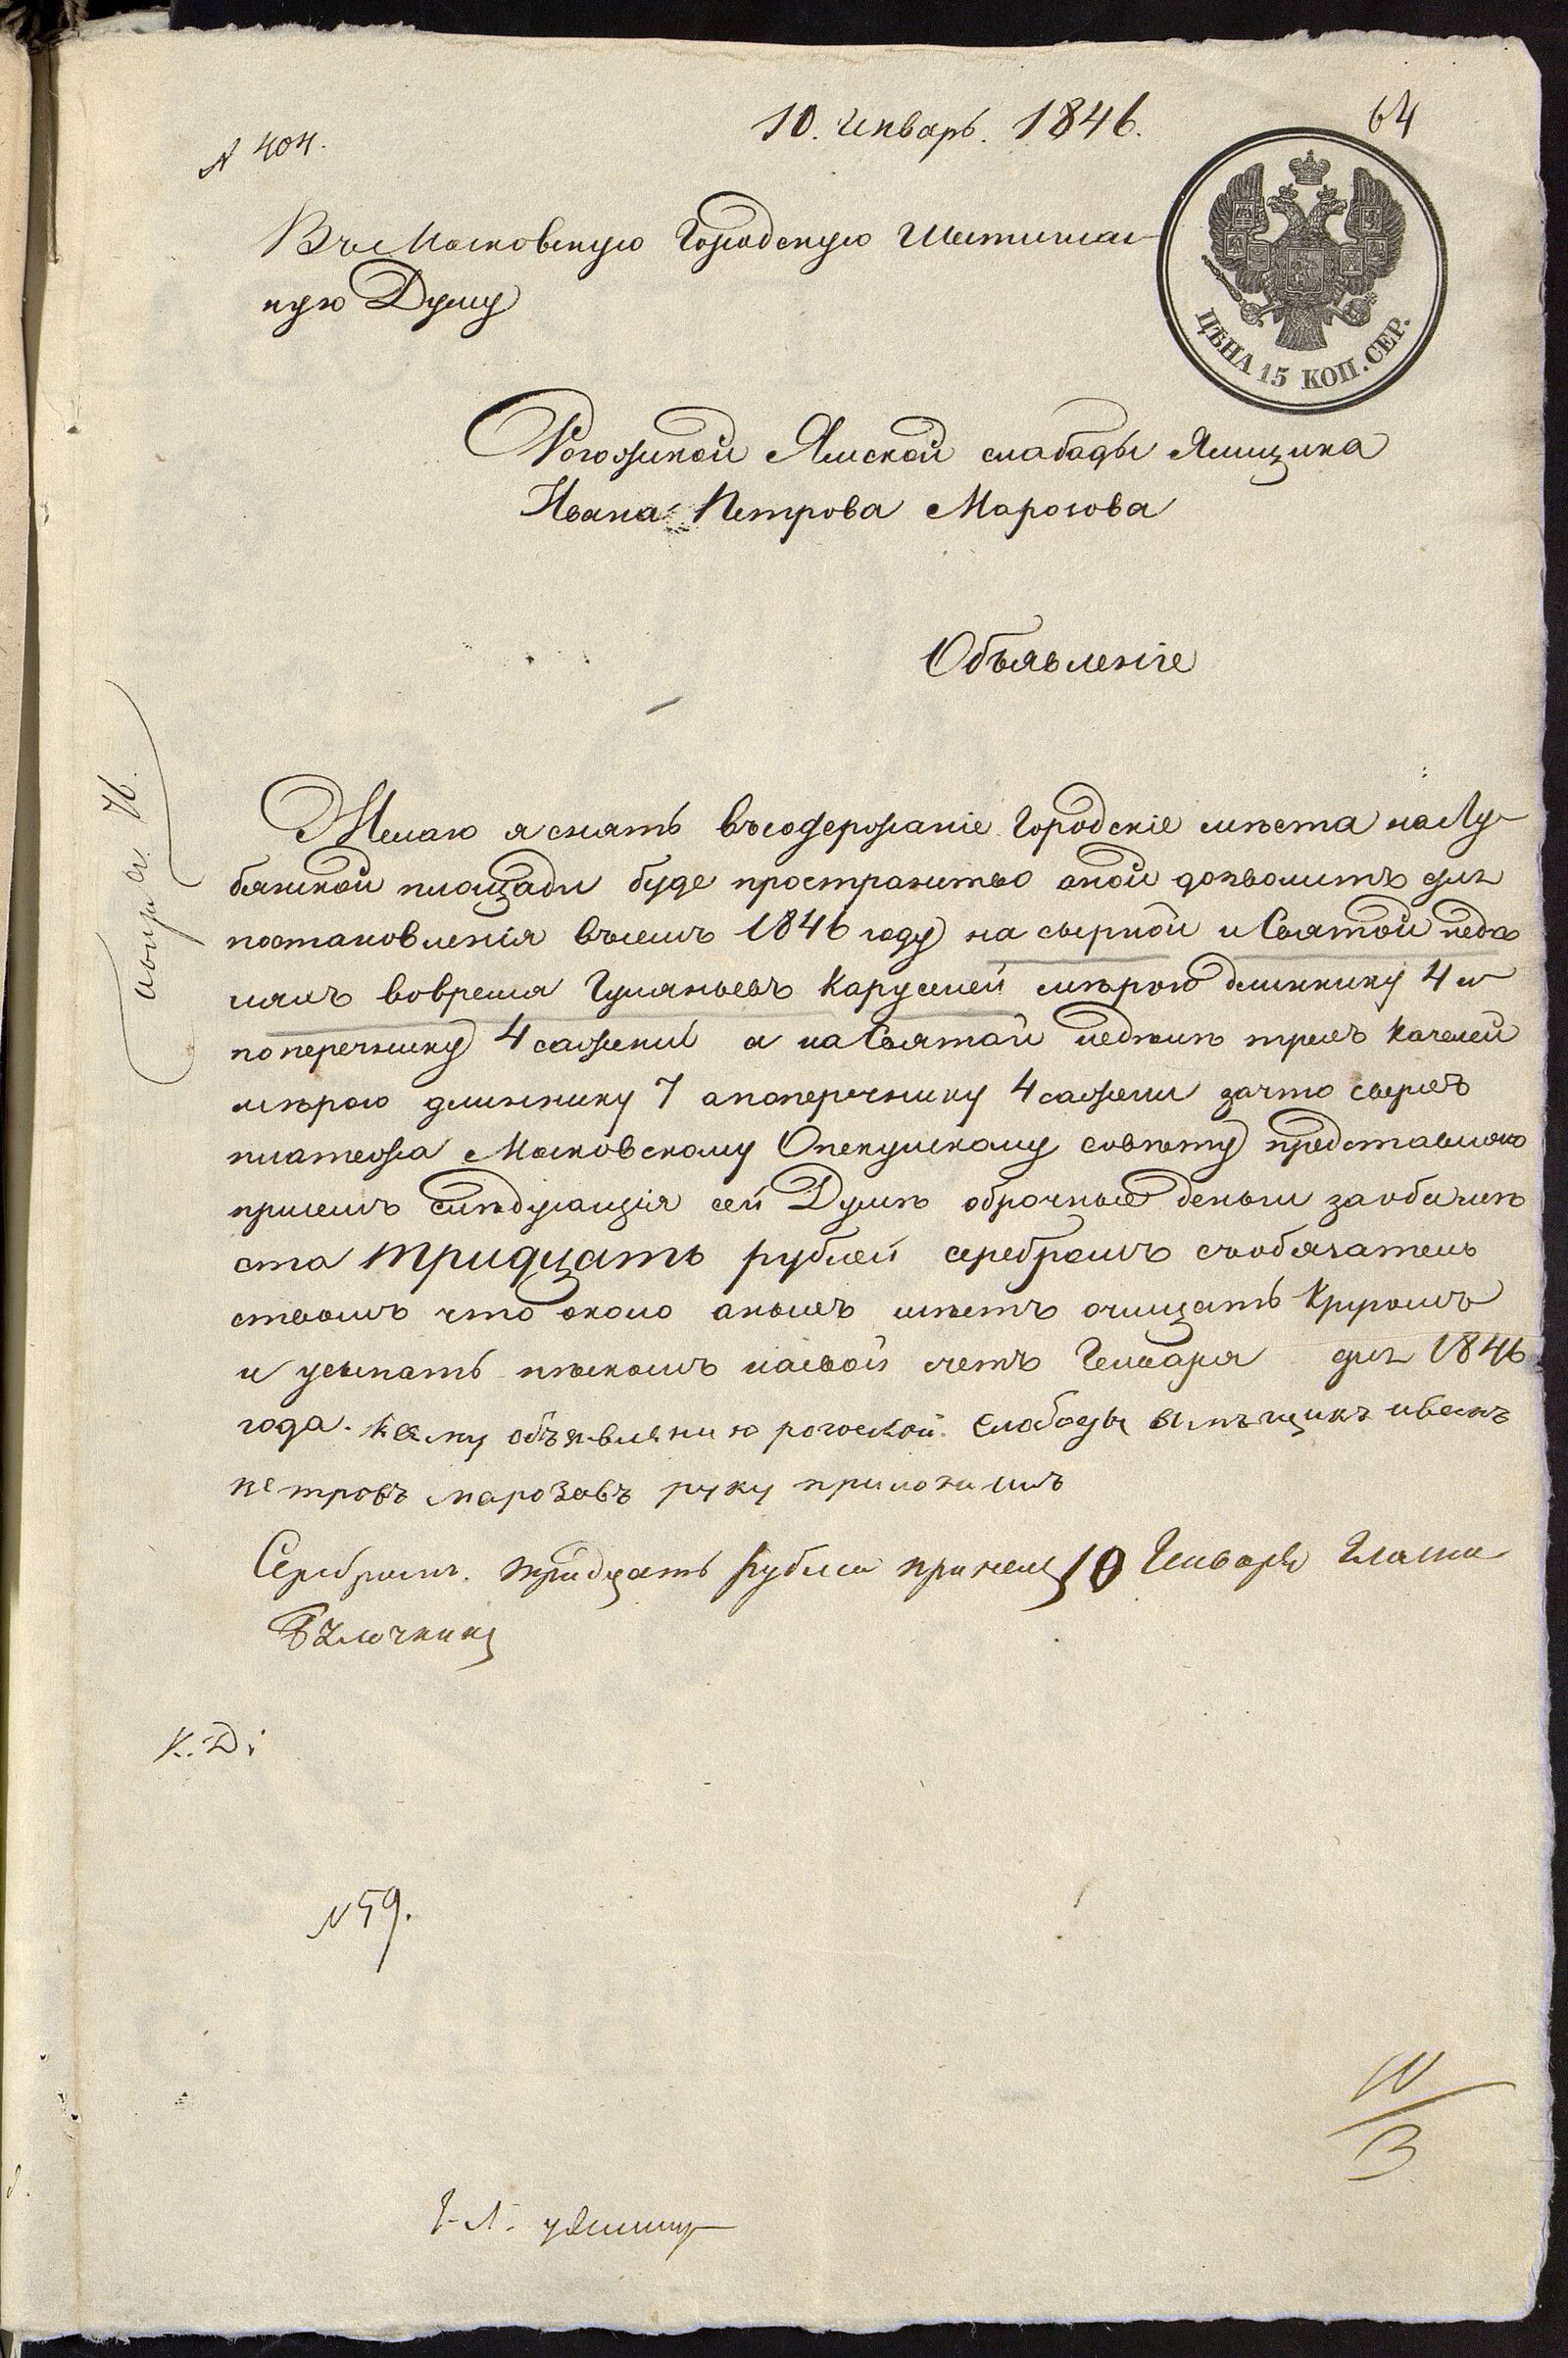 10. Генварь. 1846.
64
№ 404.
Въ Московскую Городскую Шестиглас-
ную Думу
ЦѢНА 15 КОП. СЕР.
Рогожской Ямской слабады Ямщика
Ивана Петрова Марозова
Объявленіе
Желаю я снять въ содержаніе Городскіе мѣста на Лу-
бянской площади буде пространство оной дозволитъ для
постановленія въ семъ 1846 году на сырной и Святой недѣ
ляхъ во время Гуляньевъ Каруселей мѣрою длиннику 4 и
поперечнику 4 сажени а на Святой недели трехъ качелей
мѣрою длиннику 7 а поперечнику 4 сажени за что сверхъ
платежа Московскому Опекунскому совѣту представляю
при семъ слѣдующія сей Думѣ оброчные деньги за оба мѣ
ста тридцать рублей серебромъ съ обязатель
ствомъ что около оныхъ мѣстъ очищать кругомъ
и усыпать пѣскомъ на свой счетъ Генваря дня 1846
года. К сему объявлению рогоской слабоды ямъщикъ иванъ
петровъ марозавъ руку приложилъ
Серебромъ тридцать рублей принелъ 10 Генваря
К. Д:
№ 59.
10
3